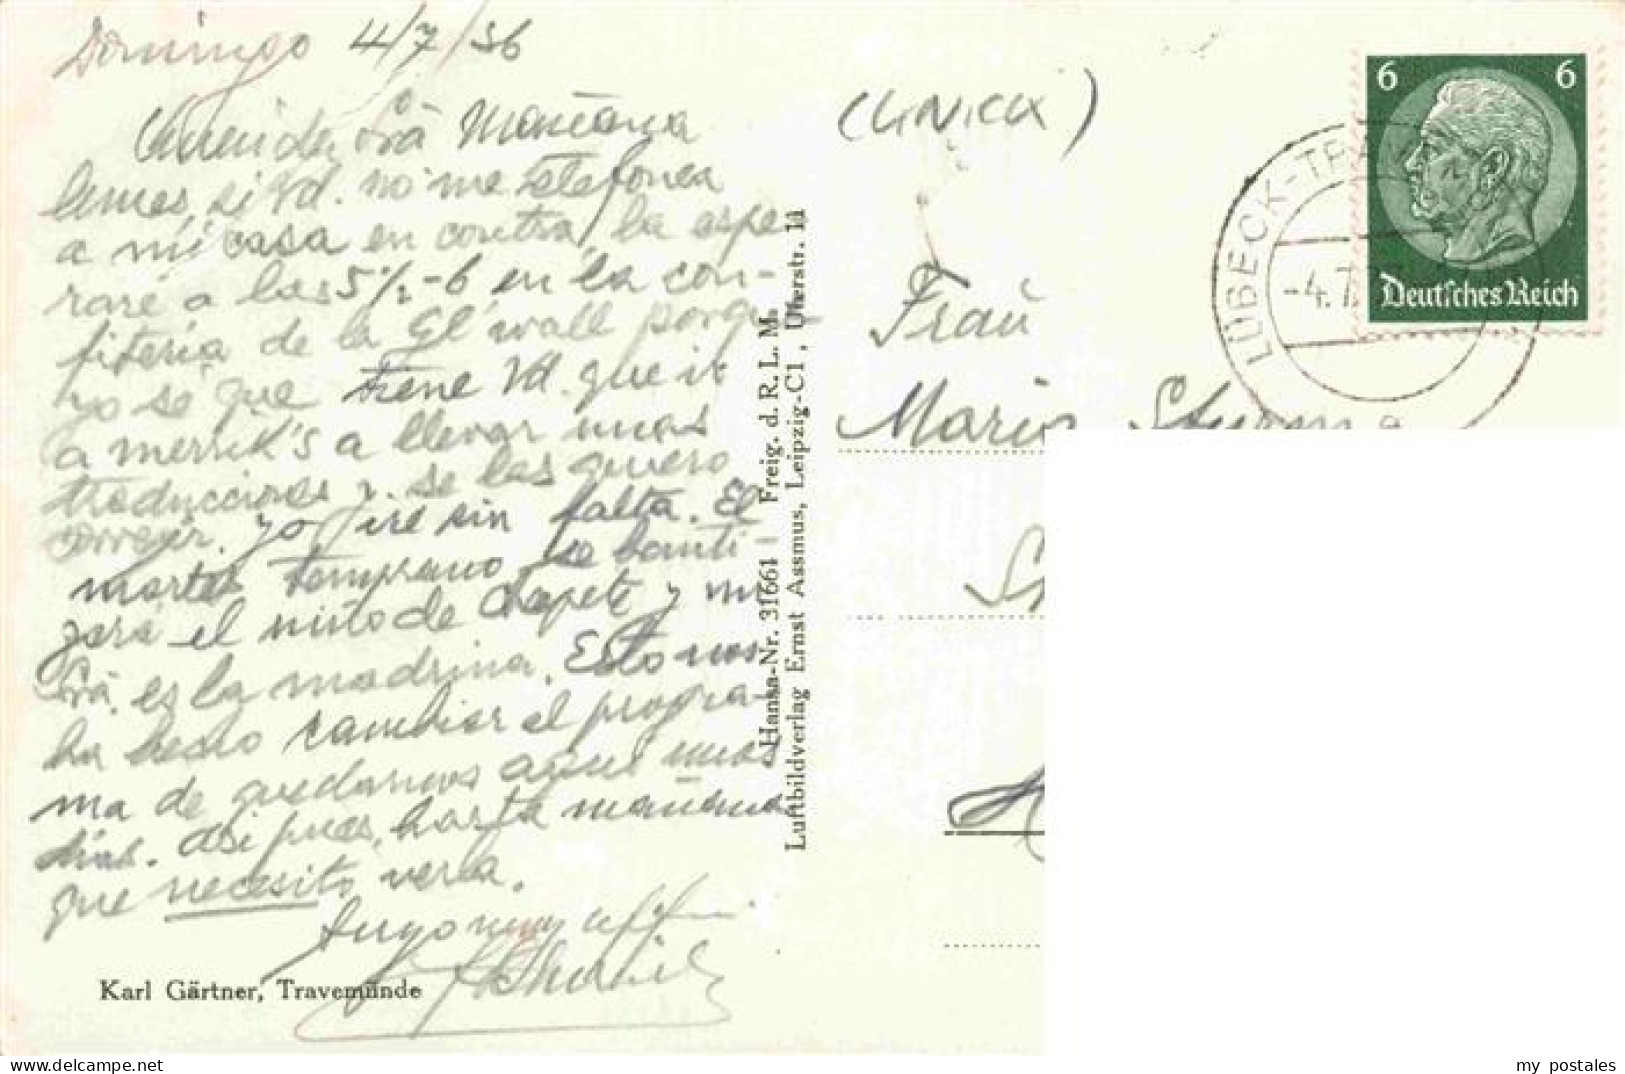 Domingo 4/7/36
Querida Srā Mañana
lunes, si Vd. no me telefonea
a mi casa en contra, la espe-
raré a las 5½-6 en la con-
fitería de la wall porq
yo sé que tiene Vd. que ir
a a llevar unas
traducciones y se las quiero
corregir. yo iré sin falta. El
martes temprano se bauti-
zará el niño de y mi
Srā. es la madrina. Esto nos
ha hecho cambiar el progra-
ma de quedarnos aqui unos
días. Asi pues, hasta mañana
que necesito verla.
Suyo muy
Karl Gärtner, Travemünde
Hansa-Nr. 31661 — Freig. d. R. L. M.
Luftbildverlag Ernst Assmus, Leipzig-C1, Uferstr. 11
Frau
Maria Sturm
6 6
Deutsches Reich
LÜBECK-TRA
-4.7.
my postales